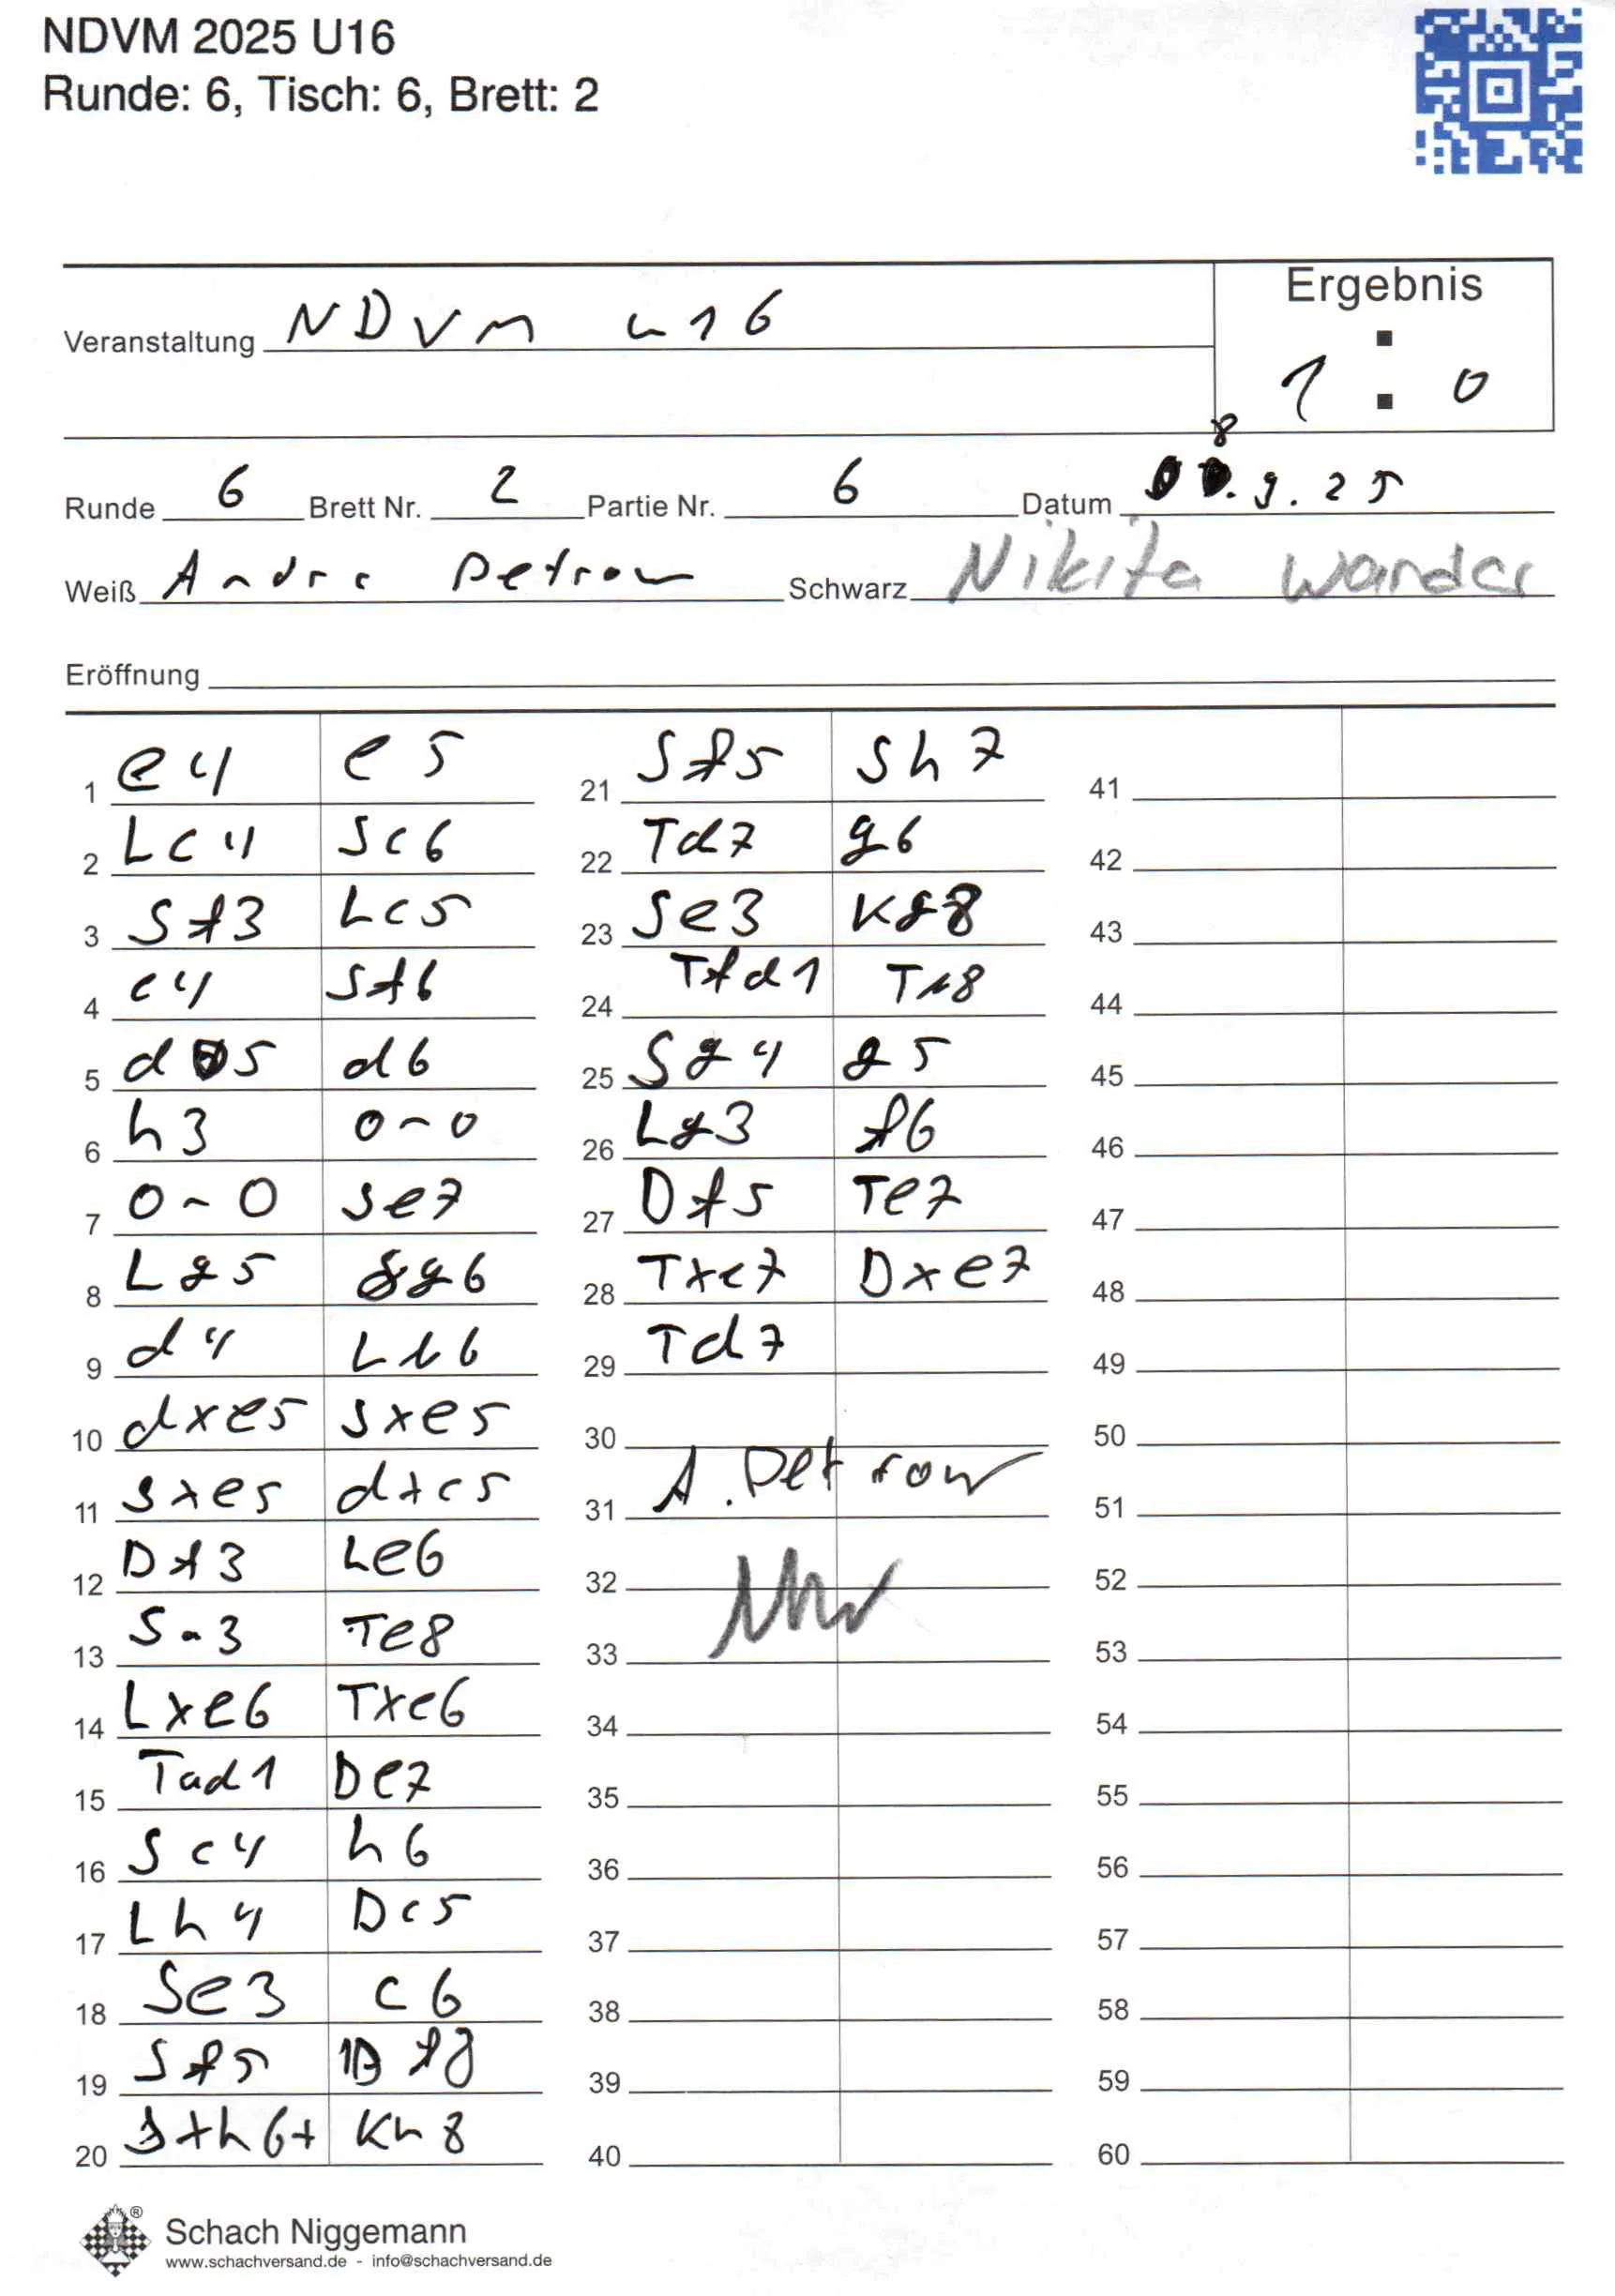 NDVM 2025 U16
Runde: 6, Tisch: 6, Brett: 2
Ergebnis
Veranstaltung NDVM u16
1 : 0
8
Runde 6 Brett Nr. 2 Partie Nr. 6 Datum .9.25
Weiß Andre Petrow Schwarz Nikita Wander
Eröffnung
1 e4 e5
2 Lc4 Sc6
3 Sf3 Lc5
4 c4 Sf6
5 d5 d6
6 h3 0-0
7 0-0 Se7
8 Lg5 Sg6
9 d4 Lb6
10 dxe5 Sxe5
11 Sxe5 dxc5
12 Df3 Le6
13 Sa3 Te8
14 Lxe6 Txe6
15 Tad1 De7
16 Sc4 h6
17 Lh4 Dc5
18 Se3 c6
19 Sf5 Df8
20 Sxh6+ Kh8
21 Sf5 Sh7
22 Td7 g6
23 Se3 Kg8
24 Tfd1 Te8
25 Sg4 g5
26 Lg3 f6
27 Df5 Te7
28 Txe7 Dxe7
29 Td7
30
31 A. Petrow
32
33
34
35
36
37
38
39
40
41
42
43
44
45
46
47
48
49
50
51
52
53
54
55
56
57
58
59
60
®
Schach Niggemann
www.schachversand.de - info@schachversand.de